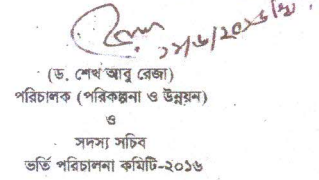 ১৮/৬/২০১৬ খ্রি.
(ড. শেখ আবু রেজা)
পরিচালক (পরিকল্পনা ও উন্নয়ন)
ও
সদস্য সচিব
ভর্তি পরিচালনা কমিটি-২০১৬